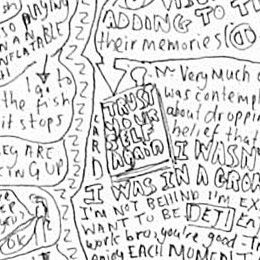 TO PLAYING
IN A
N AN
INFLATABLE
I go to
the fish
it stops
EY ARE
ING UP
OK
WITH
TO T
ADDONG
their memories!
CARD
TRUST
YOUR
SELF
AGAIN
Very much
was contemp
about droppi
belief that
I WASN
I WAS IN A GROW
I'M NOT BEHIND I'M EX
WANT TO BE DET EN
work bro, you're good - tr
enjoy EACH MOMENT